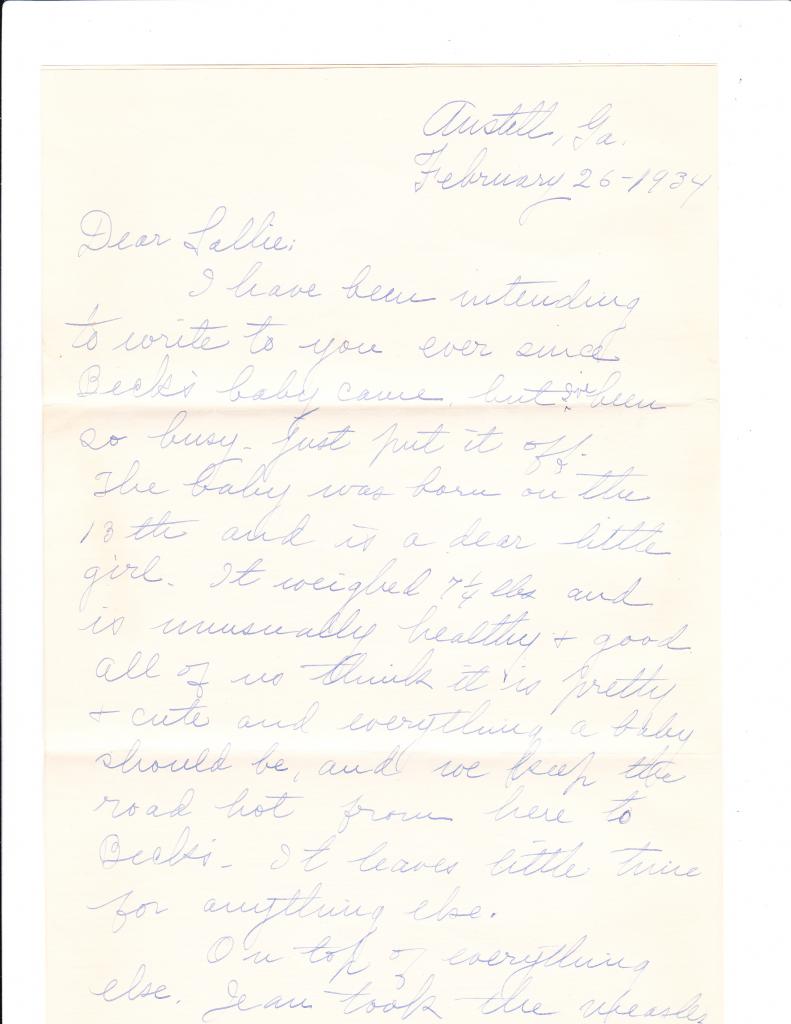 Austell, Ga.
February 26-1934
Dear Sallie:
I have been intending
to write to you ever since
Beck's baby came, but I've been
so busy - Just put it off.
The baby was born on the
13th and is a dear little
girl. It weighed 7 1/4 lbs and
is unusually healthy + good
all of us think it is pretty
+ cute and everything a baby
should be, and we keep the
road hot from here to
Beck's - It leaves little time
for anything else.
On top of everything
else. Jean took the measles